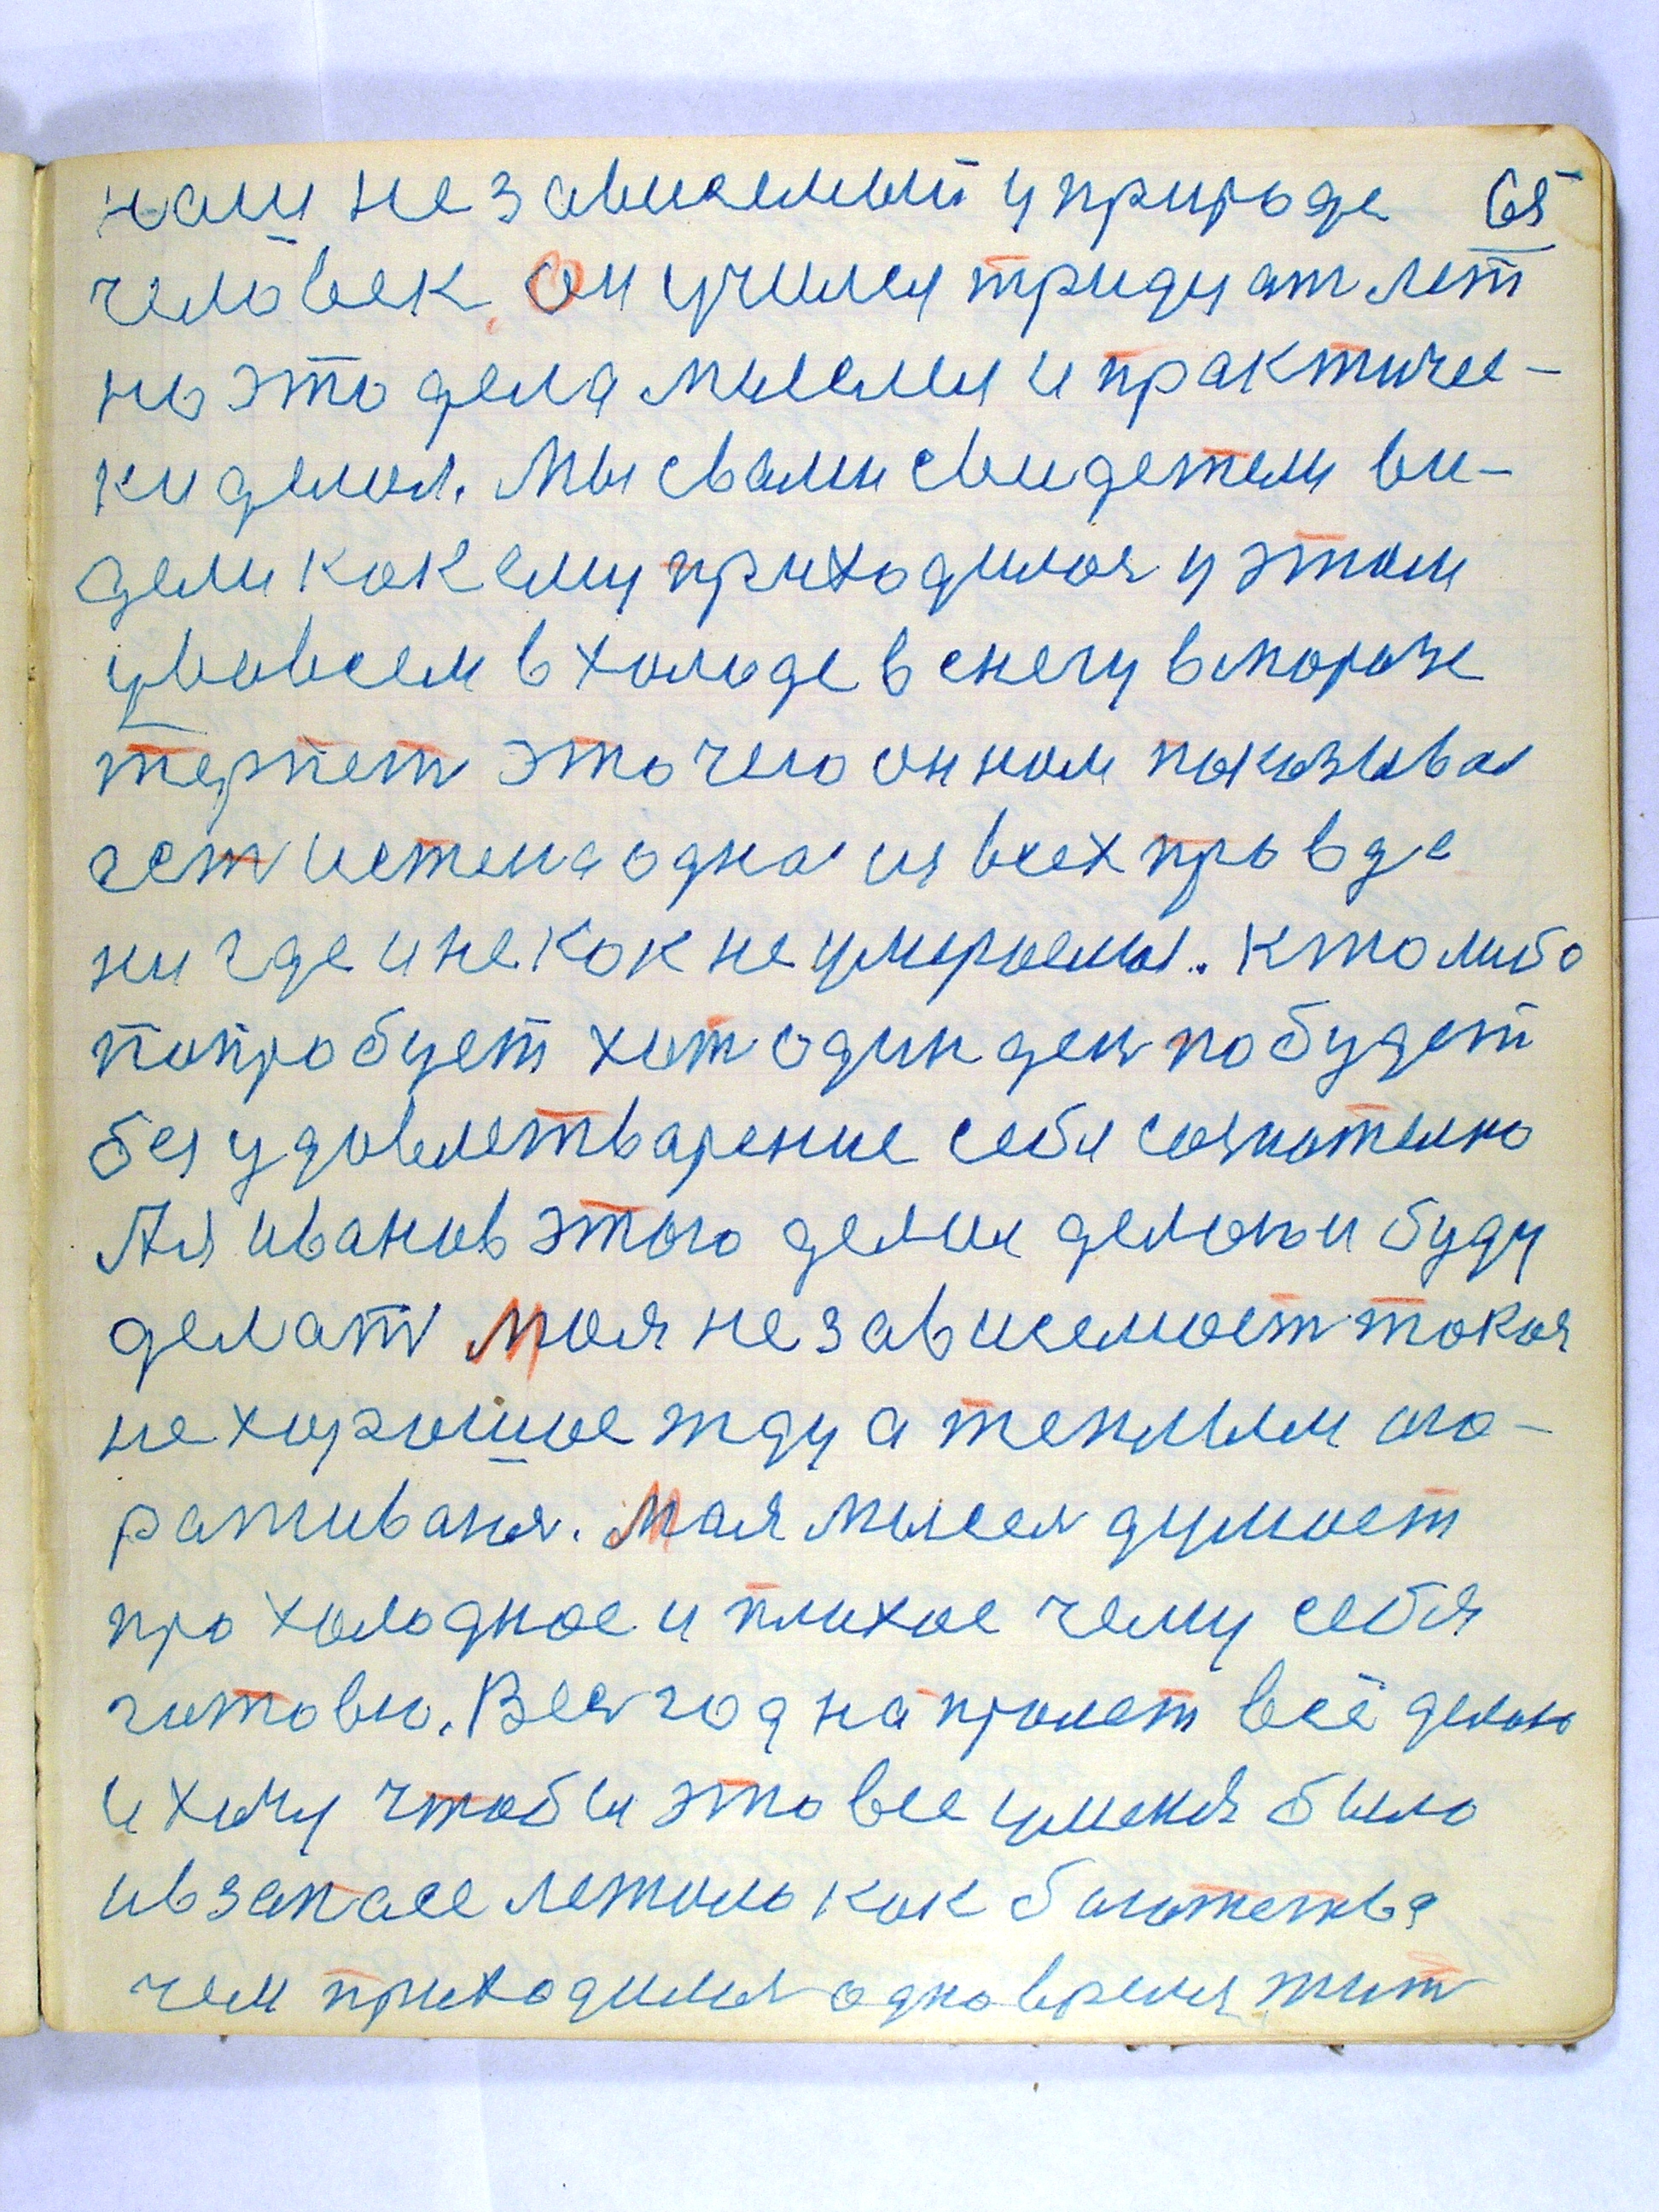 наш независемый у природе 65
человек. Он учился тридцат лет
но это дела мыслея и практичес-
ки делал. Мы свами свидетели ви-
дели как ему приходилоя у этом
увовсем в холоде в снегу вморозе
терпет это чего он нам показывал
ест истена одна из всех провде
ни где и не как не умираемы. Кто либо
попробует хот один ден побудет
без удовлетварение себя сознотелно
Ая иванов этого делал делаю и буду
делат Моя независемост такая
не хорошое жду а теплым ого-
раживаня. Мая мысел думает
про холодное и плихое чему себя
готовю. Вес год на пролет всё делаю
и хочу чтобы это все уменя было
ивзапасе лежало как богатства
чем приходился одно время жит